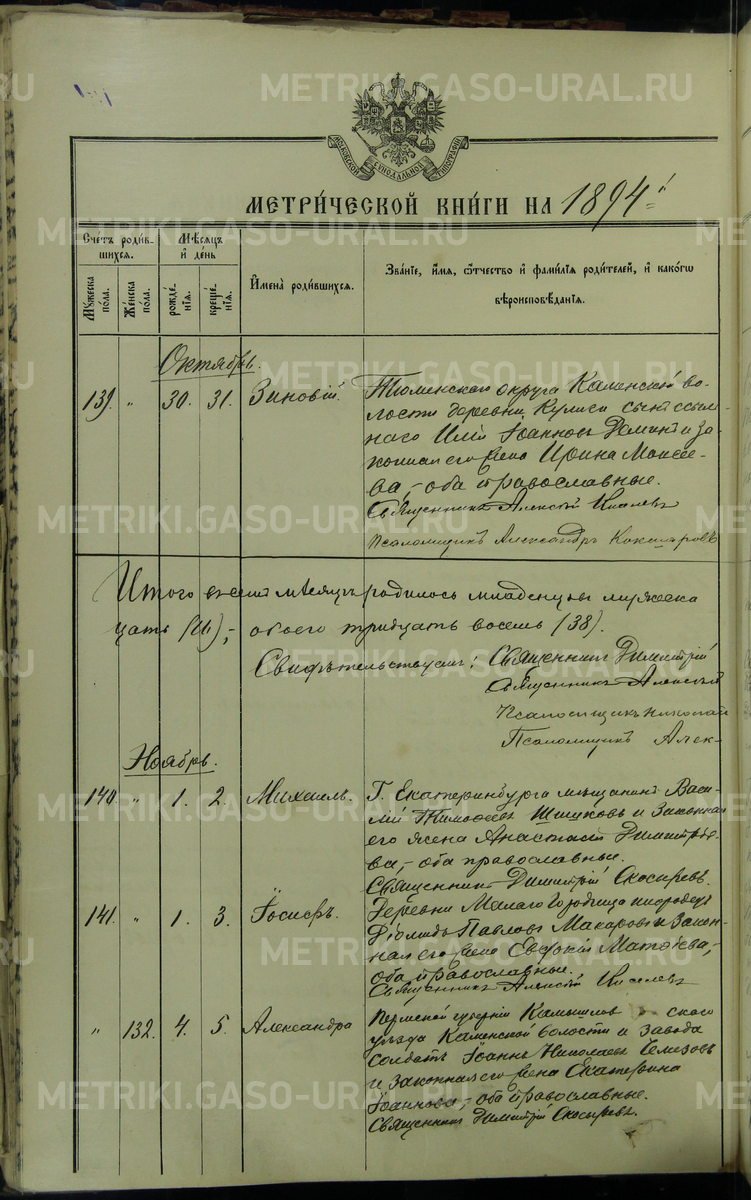 МЕТРИ́ЧЕСКОЙ КНИ́ГИ НА 1894 й
МОСКОВСКОЙ СѴНОДАЛЬНОЙ ТИПОГРАФІИ
Сче́тъ роди́в-
шихся.
Мꙋ́жеска
по́ла.
Же́нска
по́ла.
Мѣ́сяцъ
и҆ де́нь
рожде́-
нїѧ.
креще́-
нїѧ.
И҆мена̀ роди́вшихся.
Зва́нїе, и҆́мѧ, ѻ҆́тчество и҆ фами́лїѧ роди́телей, и҆ како́гѡ
вѣроисповѣ́данїѧ.
Октябрь.
139. " 30. 31. Зиновій.
Тюменскаго округа Каменской во-
лости деревни сынъ ссыль-
наго Иліи Іоаннова Деминъ и за-
конная его жена Ирина Моисее-
ва, - оба православные.
Священникъ Алексій Киселевъ
Псаломщикъ Александръ Кокшаровъ
Итого въ семъ мѣсяцѣ родилось младенцевъ мужеска
цать, - обоего тридцать восемь (38).
Свидѣтельствуемъ: Священникъ Димитрій
Священникъ Алексій
Псаломщикъ Николай
Псаломщикъ Алек-
Ноябрь.
140. " 1. 2. Михаилъ.
Г. Екатеринбурга мѣщанинъ Васи-
лій Тимофеевъ Шишковъ и законная
его жена Анастасія Димитріе-
ва, - оба православные.
Священникъ Димитрій Скосыревъ.
141. " 1. 3. Іосифъ.
Деревни Малаго Городища инородецъ
Діомидъ Павловъ Макаровъ и закон-
ная его жена Евдокія Матѳіева, -
оба православные.
Священникъ Алексій Киселевъ
" 132. 4. 5. Александра
Пермской губерніи Камышловскаго
уѣзда Каменской волости и завода
солдатъ Іоаннъ Николаевъ Чемезовъ
и законная его жена Екатерина
Іоаннова, - оба православные.
Священникъ Димитрій Скосыревъ.
METRIKI.GASO-URAL.RU